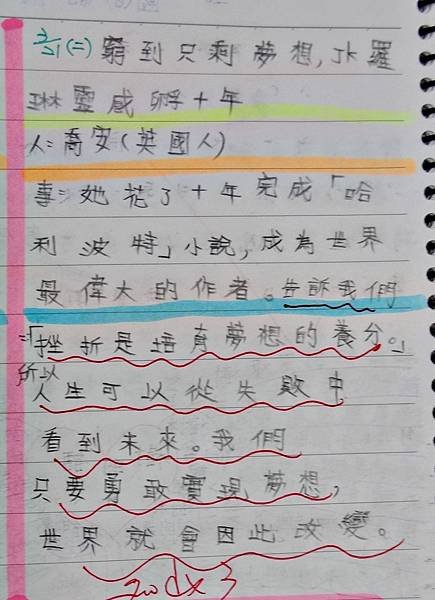 3/21(二) 窮到只剩夢想,JK羅
琳靈感孵十年
人:喬安(英國人)
事:她花了十年完成「哈
利波特」小說,成為世界
最偉大的作者。告訴我們
:「挫折是培育夢想的養分。」
所以
人生可以從失敗中
看到未來。我們
只要勇敢實現夢想,
世界就會因此改變。